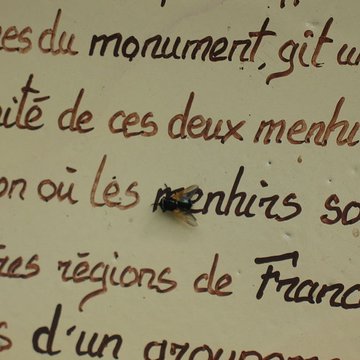 nes du monument, gît u
ité de ces deux menhi
on où les menhirs so
res régions de Franc
s d'un groupeme